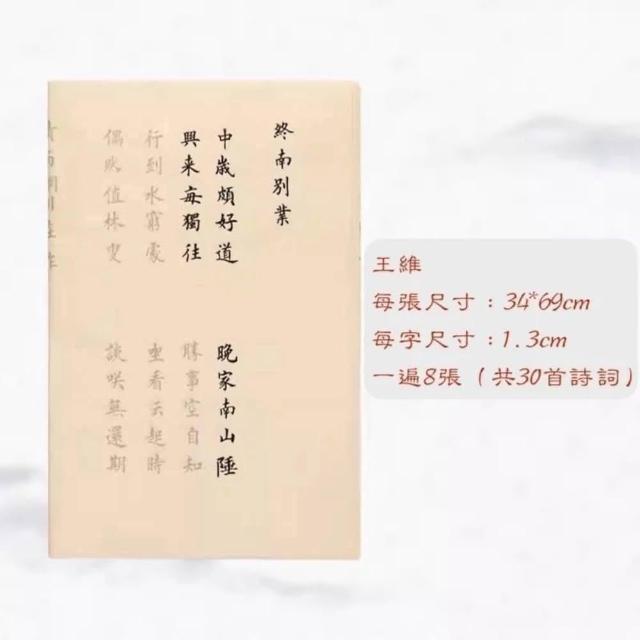 終南別業
中歳頗好道
晚家南山陲
興来每獨往
勝事空自知
行到水窮處
坐看云起時
偶然值林叟
談咲無還期
王維
每張尺寸：34*69cm
每字尺寸：1.3cm
一遍8張（共30首詩詞）